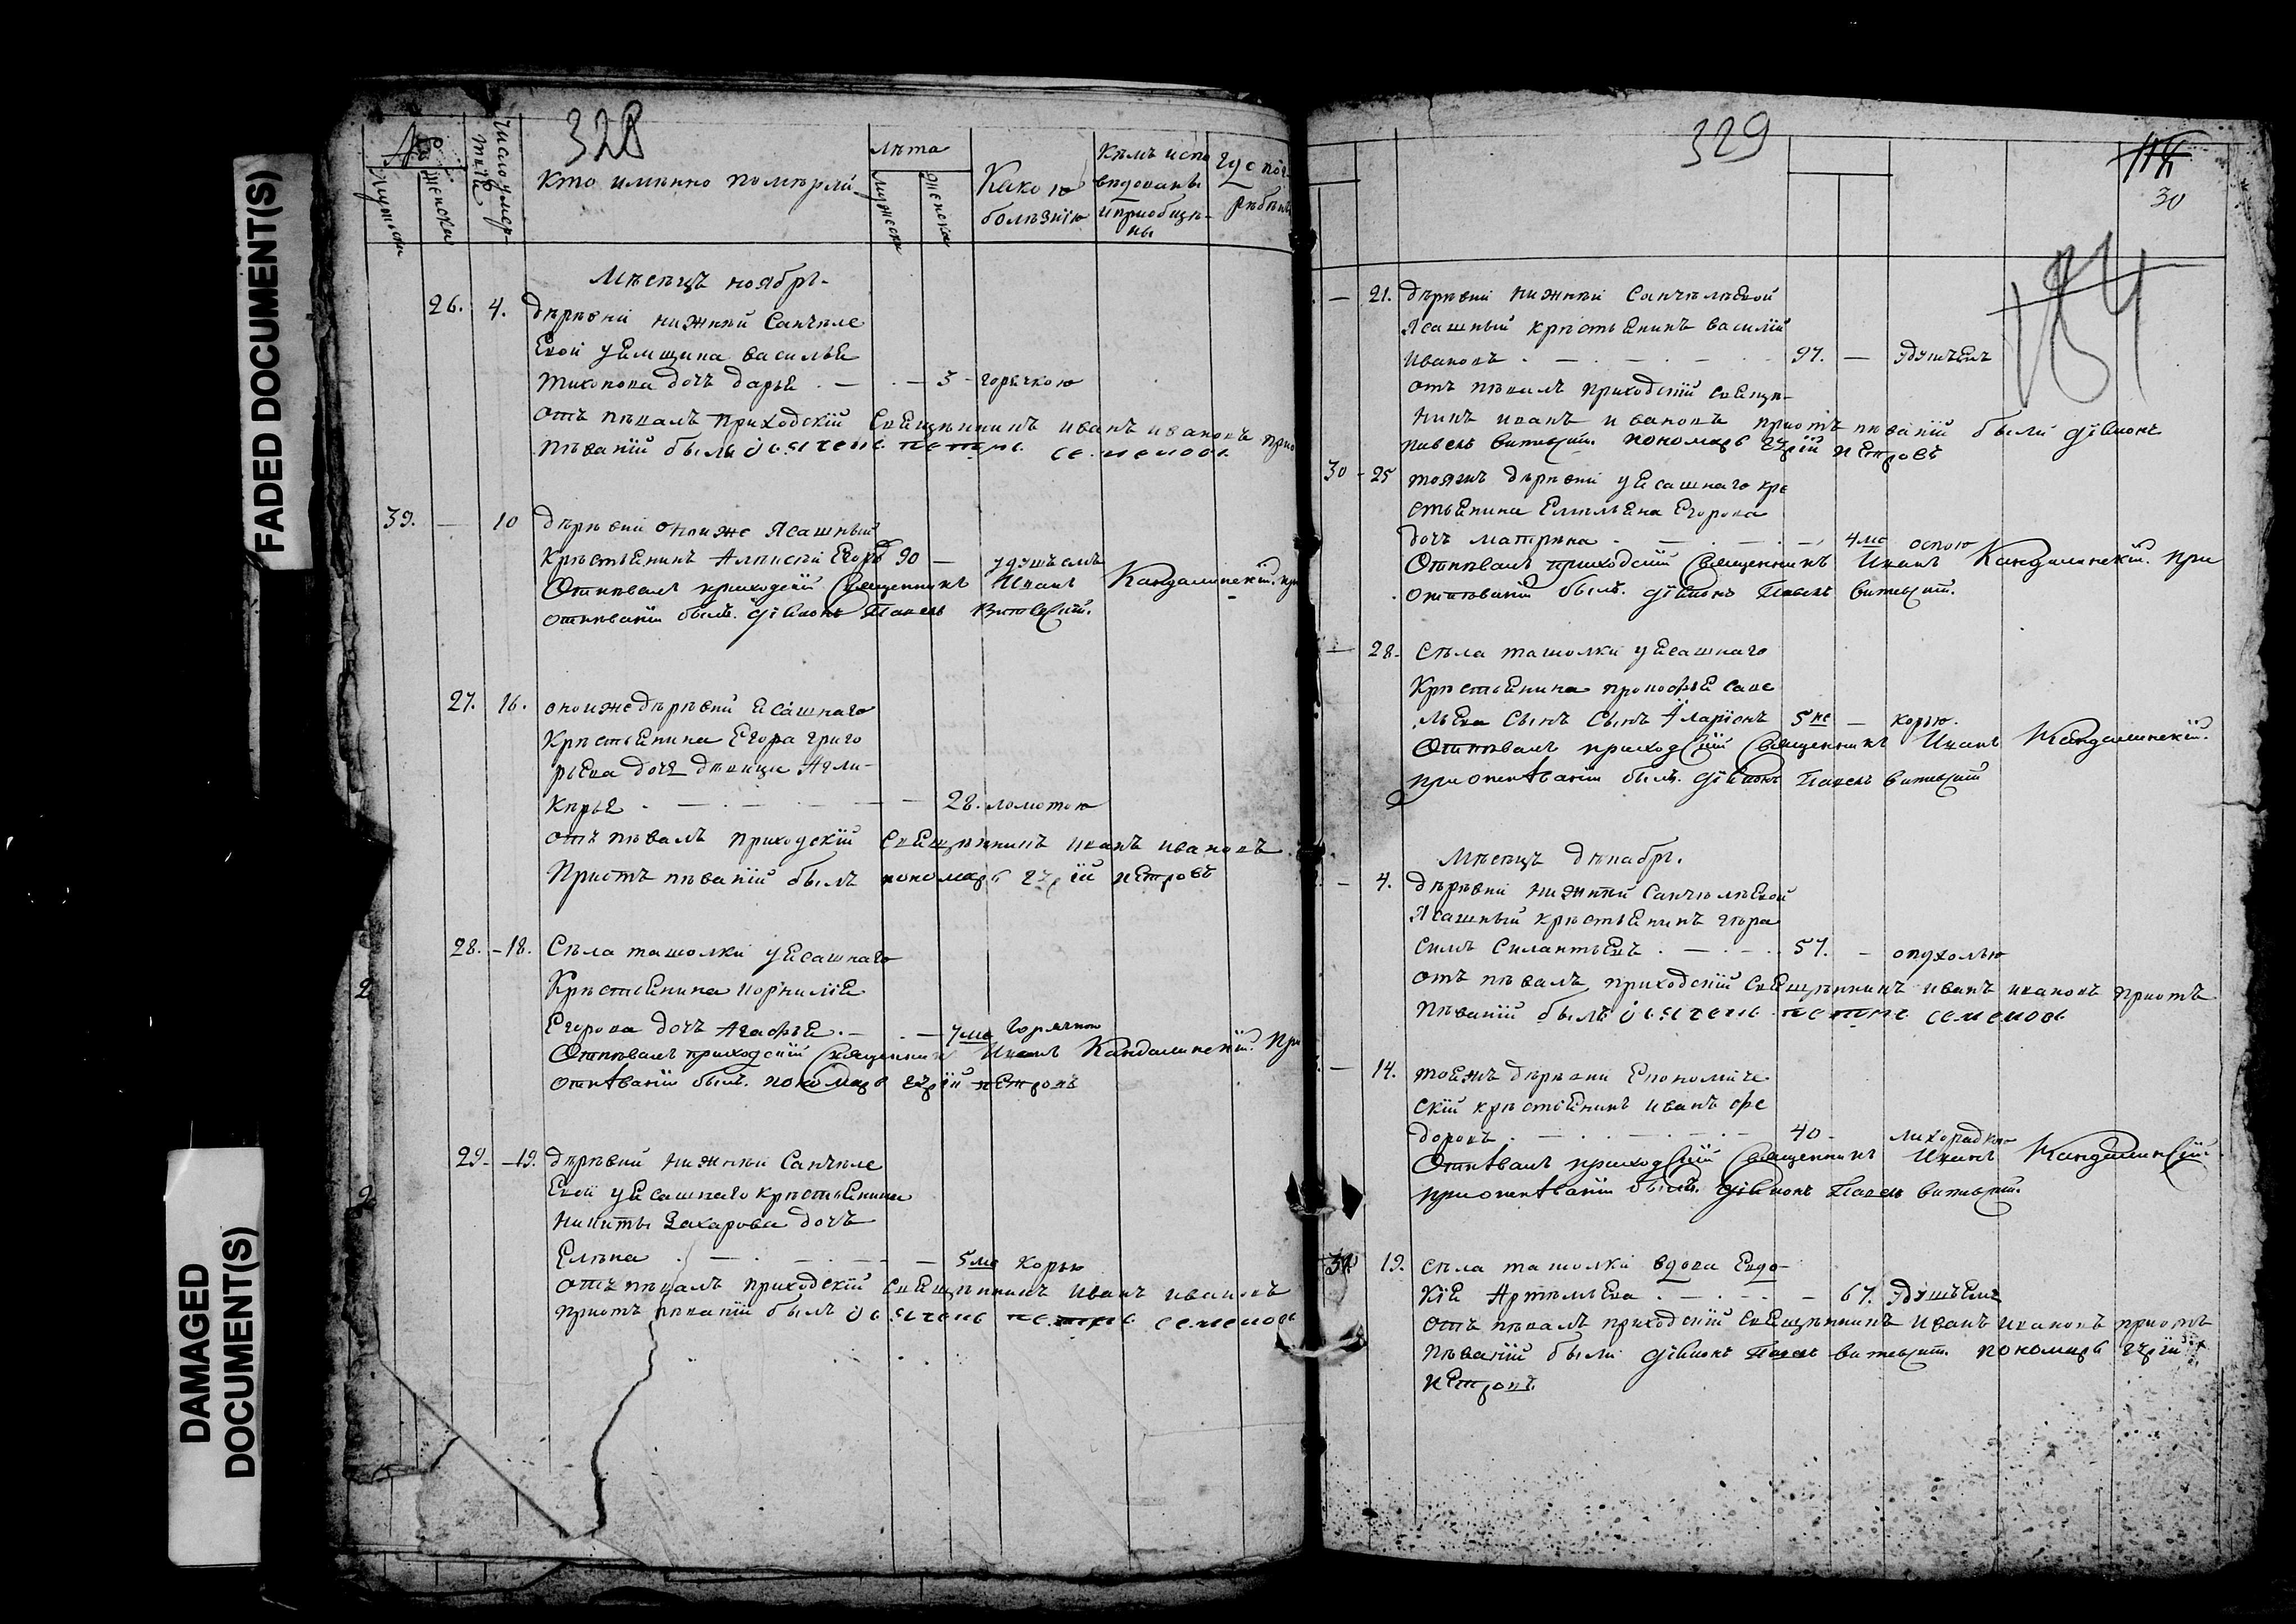 FADED DOCUMENT(S)
DAMAGED DOCUMENT(S)
328
№
мужеска
женска
Число умер-
кто имѣнно помѣрли
лѣта
мужеска
женска
Какою болѣзнїю
Кѣмъ испо
ведованы
и приобще-
ны
Где пог
рѣбѣны
Мѣсецъ ноябрь.
26. 4. дѣрѣвни нижнѣй Санчеле
Евой
Тихонова дочь дарья - 3 - горячкою
отъ пѣвалъ приходскїй свещѣнникъ иванъ ивановъ
пѣванїй былъ петръ семеновъ
39. — 10 дѣрѣвни оноиже Ясашный
Крѣстьенинъ Алексѣй Егоръ 90 — удушьемъ
Отпѣвалъ приходскїй Священникъ Иванъ Кандалинскїй. при
отпѣванїи былъ. дїаконъ Павелъ Витевскїй.
27. 16. оноиже дѣрѣвни есашнаго
Крѣстьенина Егора григо
рьева дочь девица Агли-
керья - 28. ломотою
отъ пѣвалъ приходскїй свещѣнникъ иванъ ивановъ
Приотъ пѣванїй былъ пономарь петровъ
28. - 18. Сѣла ташолки уесашнаго
Крѣстьенина корнилїе
Егорова дочь Агафье. — 7 ме горячкою
Отпѣвалъ приходскїй Священникъ Иванъ Кандалинскїй. При
отпѣванїи былъ. пономарь петровъ
29. - 19. дѣрѣвни нижнѣй Санчеле
Евой уесашнаго крѣстьенина
никиты Захарова дочь
Елѣна — 5 ме корью
отъ пѣвалъ приходскїй свещѣнникъ иванъ ивановъ
приотъ пѣванїй былъ петръ семеновъ
2
2
329
30
— 21. дѣрѣвни нижнѣй Санчѣлѣевой
Ясашный крѣстьенинъ василїй
ивановъ - 97. — удушьемъ
отъ пѣвалъ приходскїй свеще-
никъ иванъ ивановъ приотъ пѣванїй были дїаконъ
павелъ витевскїй. пономарь петровъ
30 - 25 тояжъ дѣрѣвни уесашнаго кре
стьенина Емельена Егорова
дочь матрина - 4 ме оспою
Отпѣвалъ приходскїй Священникъ Иванъ Кандалинскїй. при
отпѣванїи былъ. дїаконъ Павелъ Витевскїй.
— 28. Сѣла ташолки уесашнаго
Крѣстьенина прокофье саве
льева сынъ сынъ Іларїонъ 5 не — корью.
Отпѣвалъ приходскїй Священникъ Иванъ Кандалинскїй.
при опевѣванїи былъ. дїаконъ Павелъ Витевскїй
Мѣсецъ дѣкабрь.
— 4. дѣрѣвни нижнѣй Санчелѣевой
Ясашный крѣстьенинъ
Силантьевъ - 57. — опухолью
отъ пѣвалъ приходскїй свещѣнникъ иванъ ивановъ приотъ
пѣванїй былъ петръ семеновъ
— 14. тоежъ дѣрѣвни Економиче
скїй крѣстьенинъ иванъ фе
доровъ - 40 - лихорадкою
Отпѣвалъ приходскїй Священникъ Иванъ Кандалинскїй.
при опевѣванїи былъ. дїаконъ Павелъ Витевскїй.
19. сѣла ташолки вдова Евдо-
кїе Артемьева - 67. удушьемъ
отъ пѣвалъ приходскїй свещѣнникъ иванъ ивановъ приотъ
пѣванїй были дїаконъ Павелъ витевскїй. пономарь
петровъ.